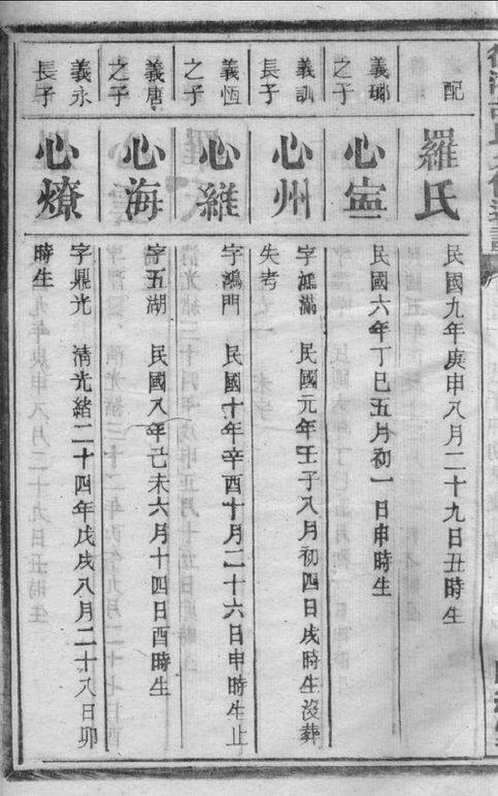 配
羅氏
民國九年庚申八月二十九日丑時生
義瑯之子
心寍
民國六年丁巳五月初一日申時生
義訓長子
心州
字滙滿 民國元年壬子八月初四日戌時生沒葬
失考
義恆之子
心維
字鴻門 民國十年辛酉十月二十六日申時生止
義唐之子
心海
字五湖 民國八年己未六月十四日酉時生
義永長子
心燎
字鼎光 清光緒二十四年戊戌八月二十八日卯
時生